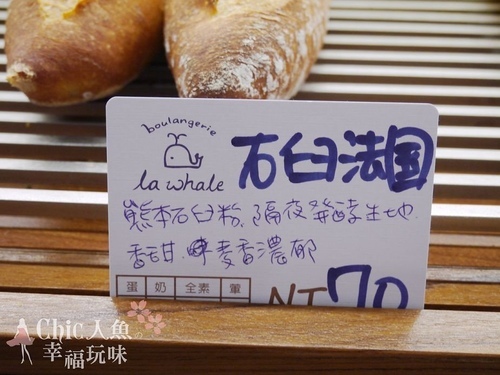 boulangerie
la whale
石臼法国
熊本石臼粉、隔夜發酵生地
香甜、麥香濃郁
蛋 奶 全素 葷
NT 70
Chic人魚
幸福玩味